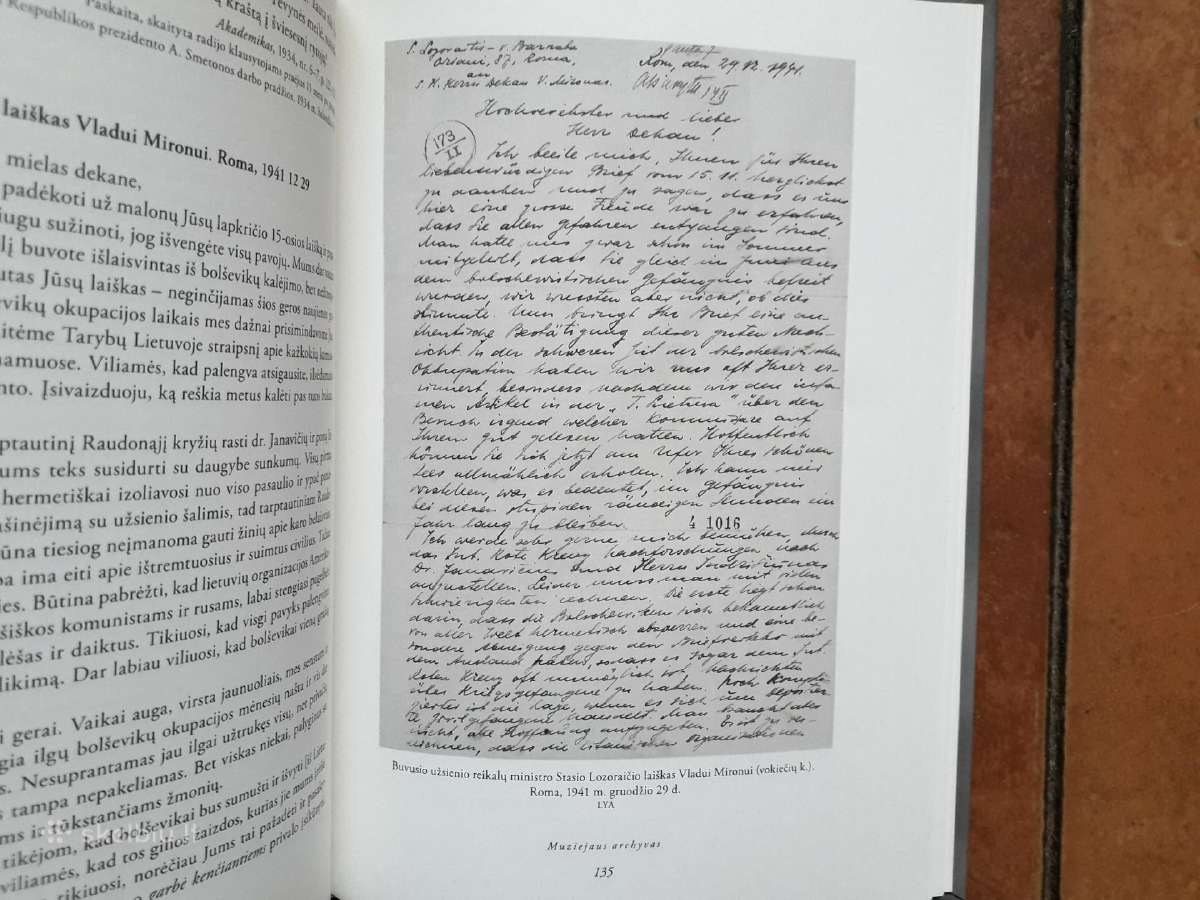 Tėvynės meilė
kraštą į šviesesnį rytojų.
Paskaita, skaityta radijo klausytojams
Akademikas, 1934, nr. 6–7, p.
Respublikos prezidento A. Smetonos darbo pradžios. 1934 m.
laiškas Vladui Mironui. Roma, 1941 12 29
mielas dekane,
padėkoti už malonų Jūsų lapkričio 15-osios laišką ir
iugu sužinoti, jog išvengėte visų pavojų. Mums dar
lį buvote išlaisvintas iš bolševikų kalėjimo, bet
utas Jūsų laiškas – neginčijamas šios geros naujienos
evikų okupacijos laikais mes dažnai prisimindavome
itėme Tarybų Lietuvoje straipsnį apie kažkokių
namuose. Viliamės, kad palengva atsigausite,
ento. Įsivaizduoju, ką reiškia metus kalėti pas tuos
ptautinį Raudonąjį kryžių rasti dr. Janavičių ir poną
ums teks susidurti su daugybe sunkumų. Visų
hermetiškai izoliavosi nuo viso pasaulio ir ypač
ašinėjimą su užsienio šalimis, tad tarptautiniam
ūna tiesiog neįmanoma gauti žinių apie karo
pa ima eiti apie ištremtuosius ir suimtus civilius.
ies. Būtina pabrėžti, kad lietuvių organizacijos
šiškos komunistams ir rusams, labai stengiasi
lėšas ir daiktus. Tikiuosi, kad visgi pavyks palengvinti
likimą. Dar labiau viliuosi, kad bolševikai vieną
i gerai. Vaikai auga, virsta jaunuoliais, mes
gia ilgų bolševikų okupacijos mėnesių našta ir vis dar
s. Nesuprantamas jau ilgai užtrukęs visų, net
s tampa nepakeliamas. Bet viskas niekai, palyginus su
ms ir tūkstančiams žmonių.
tikėjom, kad bolševikai bus sumušti ir išvyti
viliamės, kad tos gilios žaizdos, kurias jie mums
tikiuosi, norėčiau Jums tai pažadėti ir
garbė kenčiantiems privalo
skelbiu.lt
S. Lozoraitis – v. Barnaba
Oriani, 87, Roma,
an
S. H. Herrn Dekan V. Mironas.
Rom, den 29.12.1941.
Hochverehrter und lieber
Herr Dekan!
173
II
Ich beeile mich, Ihnen für Ihren
liebenswürdigen Brief vom 15. 11. herzlichst
zu danken und zu sagen, dass es uns
hier eine grosse Freude war zu erfahren,
dass Sie allen Gefahren entgangen sind.
Man hatte uns zwar schon im Sommer
mitgeteilt, dass Sie gleich im Juni aus
dem bolschewistischen Gefängnis befreit
wurden, wir wussten aber nicht, ob dies
stimmte. Nun bringt Ihr Brief eine au-
thentische Bestätigung dieser guten Nach-
richt. In der schweren Zeit der bolschewistischen
Okkupation haben wir uns oft Ihrer er-
innert, besonders nachdem wir den infa-
men Artikel in der „T. Lietuva" über den
Besuch irgend welcher Kommissare auf
Ihrem gut gelesen hatten. Hoffentlich
können Sie sich jetzt am Ufer Ihres schönen
Sees allmählich erholen. Ich kann mir
vorstellen, was es bedeutet, im Gefängnis
bei diesen stupiden räudigen Hunden ein
Jahr lang zu bleiben.
4 1016
Ich werde sehr gerne mich bemühen, durch
das Int. Rote Kreuz Nachforschungen nach
Dr. Janavičius und Herrn
anzustellen. Leider muss man mit vielen
Schwierigkeiten rechnen. Die erste liegt schon
darin, dass die Bolschewiken sich bekanntlich
von aller Welt hermetisch absperren und eine be-
sondere Abneigung gegen den Briefverkehr mit
dem Ausland haben, sodass es sogar dem Int.
Roten Kreuz oft unmöglich ist, Nachrichten
über Kriegsgefangene zu haben. Noch kompli-
zierter ist die Lage, wenn es sich um deportier-
te Zivilgefangene handelt. Man braucht aber
nicht, alle Hoffnung aufzugeben. Es ist zu er-
wähnen, dass die litauischen Organisationen
Buvusio užsienio reikalų ministro Stasio Lozoraičio laiškas Vladui Mironui (vokiečių k.).
Roma, 1941 m. gruodžio 29 d.
LYA
Muziejaus archyvas
135